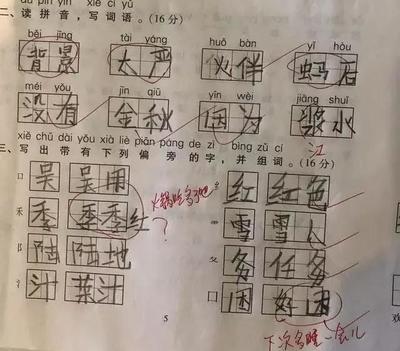 二、读拼音，写词语。(16分)
běi jǐng tài yáng huǒ bàn yǐ hòu
背景 太严 伙伴 蚂石
méi yǒu jīn qiū yīn wèi jiāng shuǐ
没有 金秋 因为 浆水
江
xiě chū dài yǒu xià liè piān páng de zì bìng zǔ cí
三、写出带有下列偏旁的字，并组词。(16分)
口 吴 吴用 纟 红 红色
火锅吃多了吧
禾 季 季季红 ? ⻗ 雪 雪人
阝 陆 陆地 夂 务 任务
氵 汁 菜汁 囗 困 好困
5
下次多睡一会儿